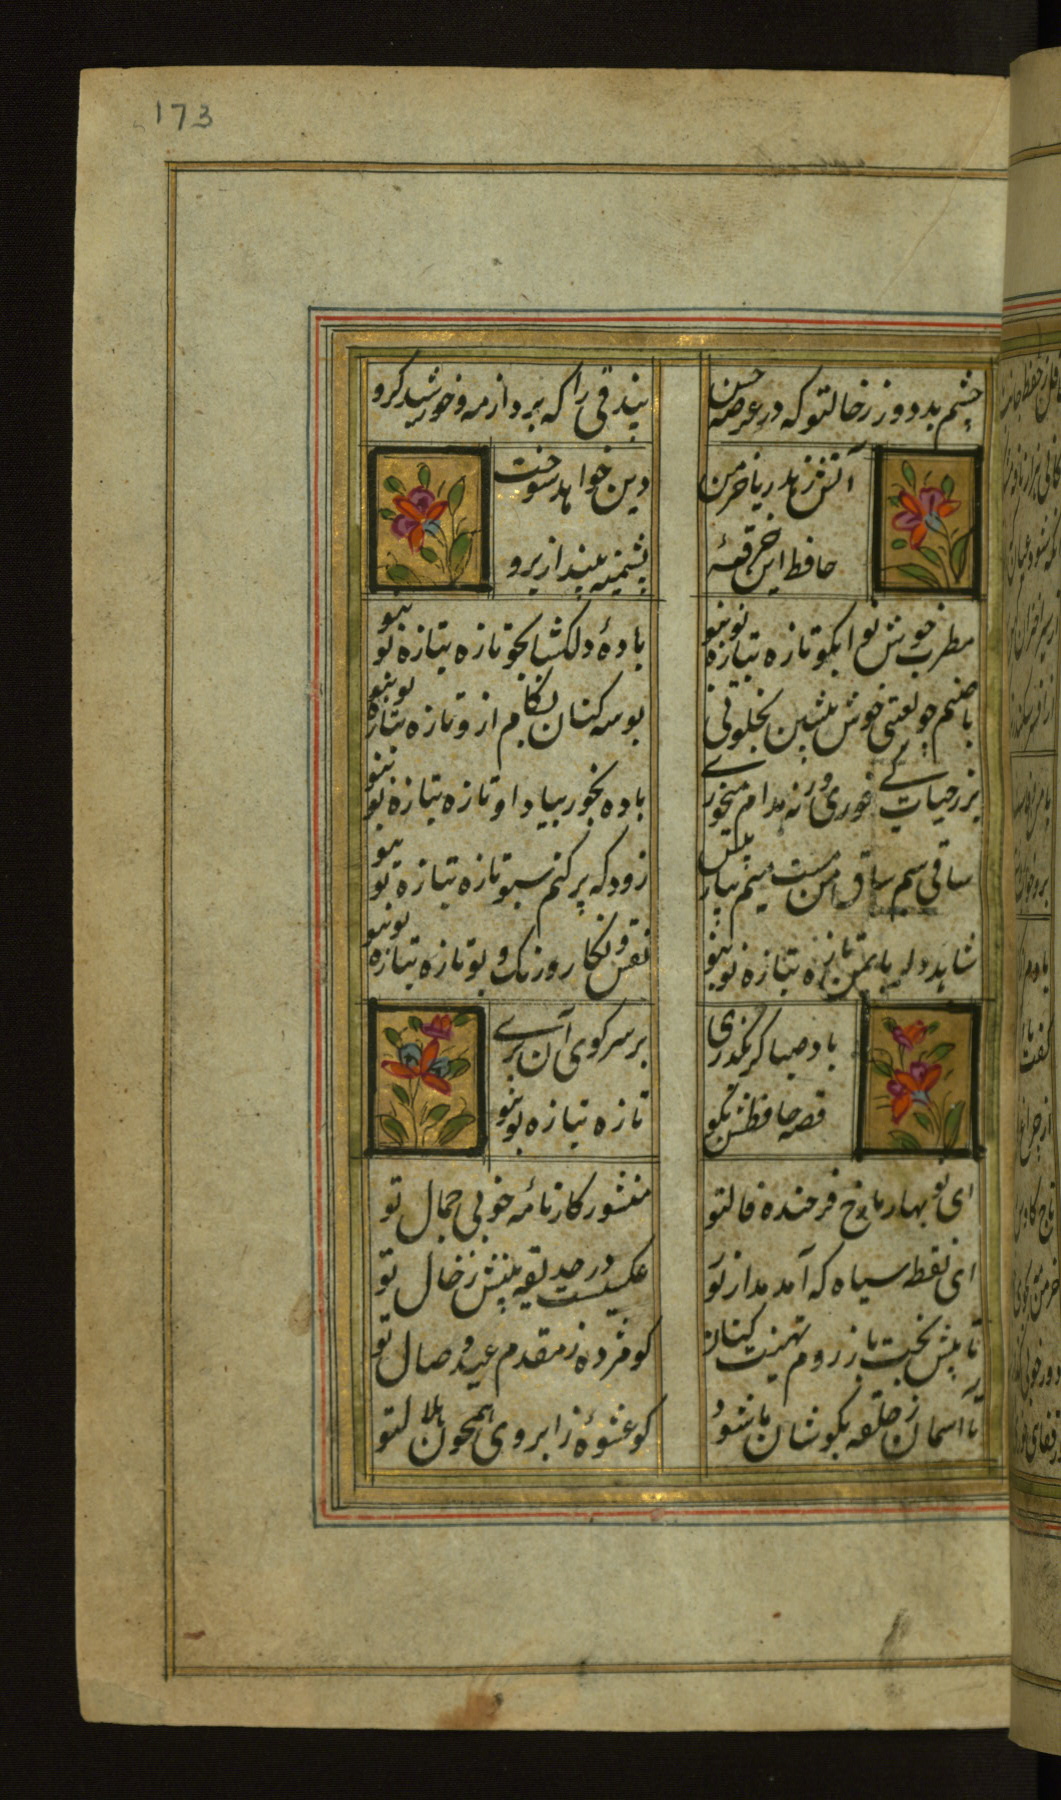 173
چشم بد دور ز خال تو که در عرصه حسن
بیدقی راند که برد از مه و خورشید گرو
آتش زهد ریا خرمن
دین خواهد سوخت
حافظ این خرقهٔ
پشمینه بینداز برو
مطرب خوش نوا بگو تازه بتازه نو بنو
بادهٔ دلکشا بجو تازه بتازه نو بنو
با صنم چو لعبتی خوش بنشین بخلوتی
بوسه ستان بکام ازو تازه بتازه نو بنو
بر ز حیات کی خوری ور نه مدام میخوری
باده بخور بیاد او تازه بتازه نو بنو
ساقی سیم ساق من مست میم بیار پیش
زود که پر کنم سبو تازه بتازه نو بنو
شاهد دلربای من تازه بتازه نو بنو
نقش و نگار و رنگ و بو تازه بتازه نو بنو
باد صبا گر بگذری
بر سر کوی آن پری
قصه حافظش بگو
تازه بتازه نو بنو
ای نو بهار ما رخ فرخنده فال تو
منشور کارنامهٔ خوبی جمال تو
ای نقطه سیاه که آمد مدار نو
عکسیست در حدیقه بینش ز خال تو
تا پیش بخت باز روم تهنیت کنان
کو مژده ز مقدم عید وصال تو
تا آسمان ز حلقه بگوشان ما شود
کو عشوهٔ ز ابروی همچون هلال تو